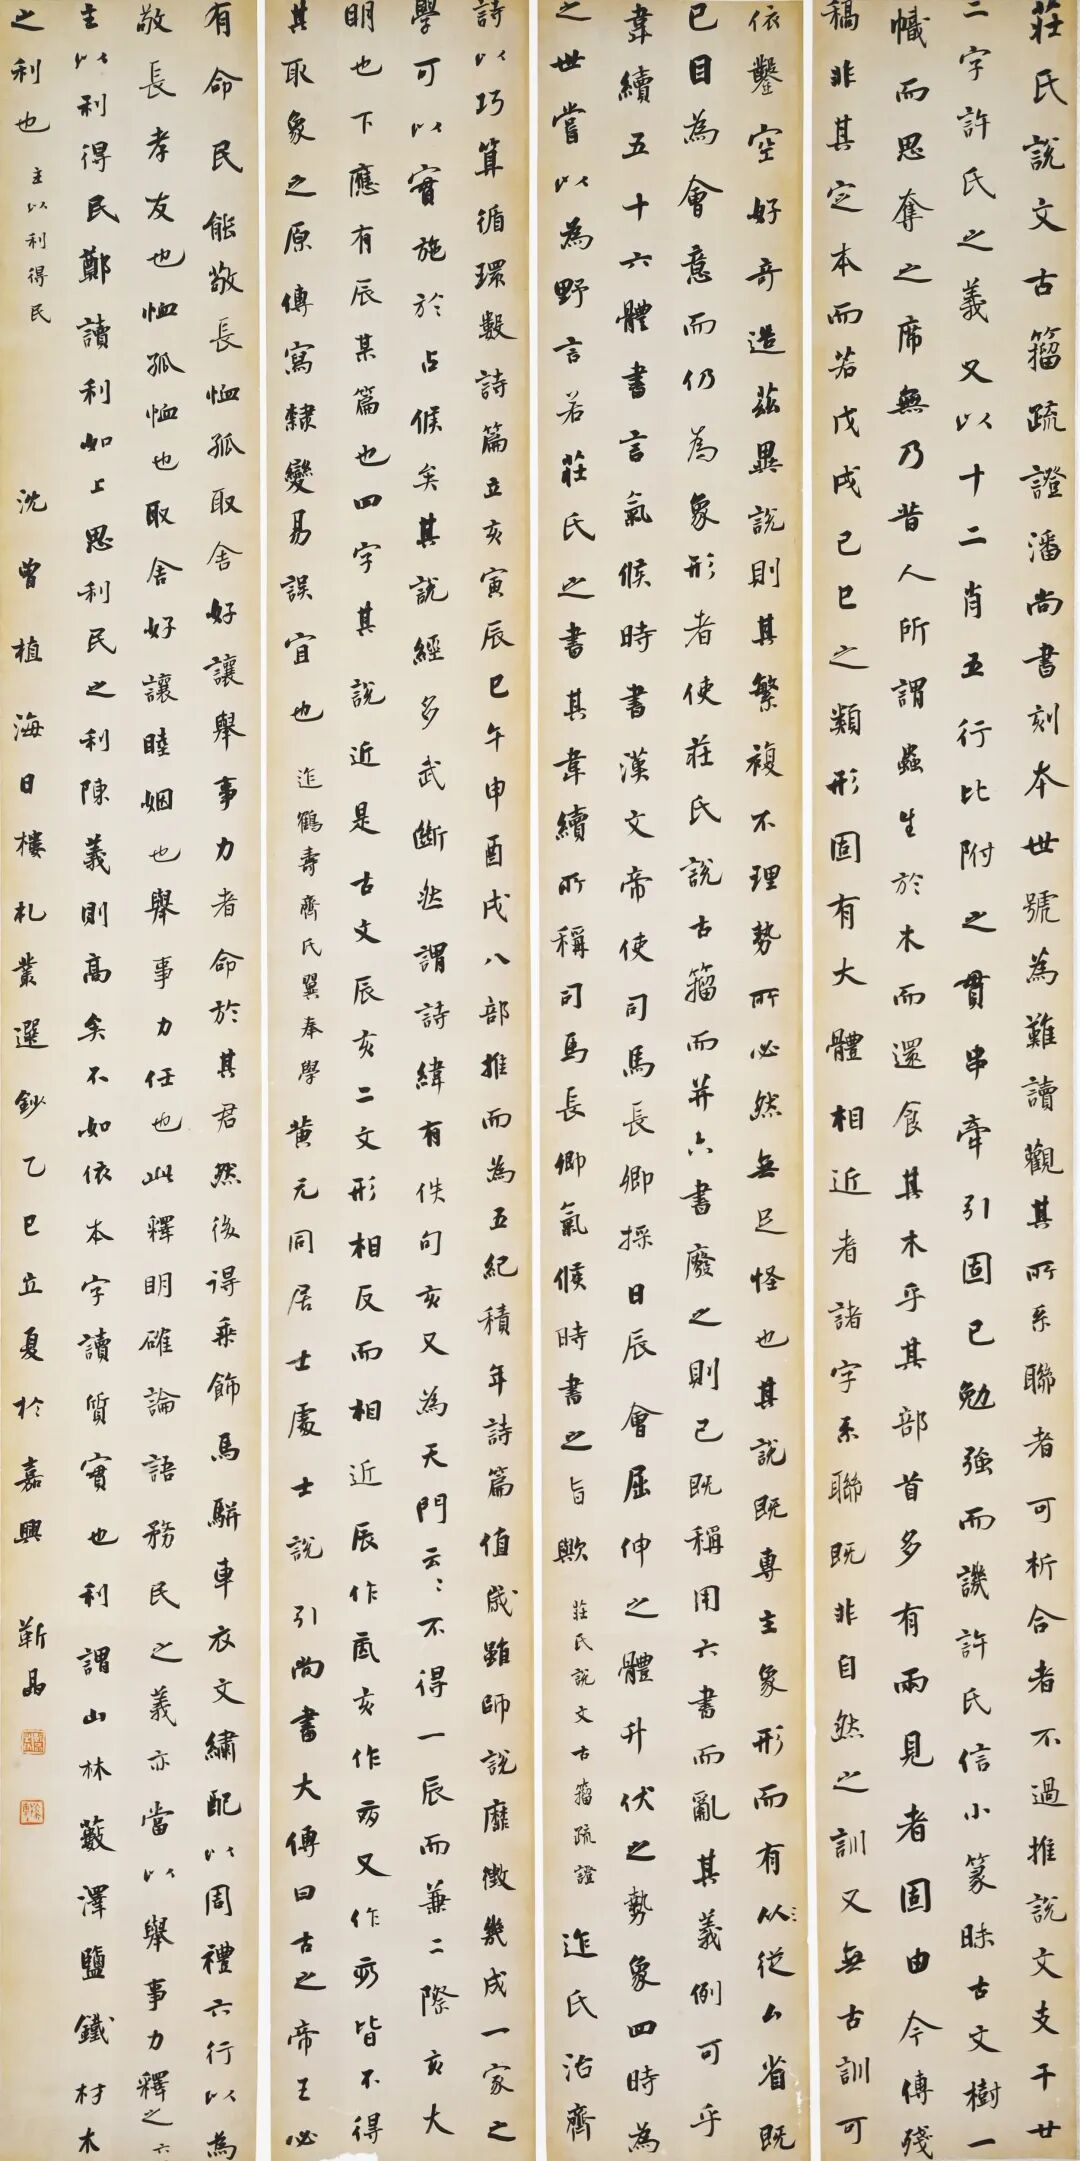 莊氏說文古籀疏證潘尚書刻本世號為難讀觀其所系聯者可析合者不過推說文支干廿
二字許氏之義又以十二肖五行比附之貫串牽引固已勉強而譏許氏信小篆昧古文樹一
幟而思奪之席無乃昔人所謂蟲生於木而還食其木乎其部首多有兩見者固由今傳殘
稿非其定本而若戊戌己巳之類形固有大體相近者諸字系聯既非自然之訓又無古訓可
依鑿空好奇造茲異說則其繁複不理勢所必然無足怪也其說既專主象形而有从從厶省既
已目為會意而仍為象形者使莊氏說古籀而并六書廢之則已既稱用六書而亂其義例可乎
韋續五十六體書言氣候時書漢文帝使司馬長卿採日辰會屈伸之體升伏之勢象四時為
之世嘗以為野言若莊氏之書其韋續所稱司馬長卿氣候時書之旨歟 莊氏說文古籀疏證 迮氏治齊
詩以巧算循環數詩篇立亥寅辰巳午申酉戌八部推而為五紀積年詩篇值歲雖師說靡徵幾成一家之
學可以實施於占候矣其說經多武斷然謂詩緯有佚句亥又為天門云〻不得一辰而兼二際亥大
明也下應有辰某篇也四字其說近是古文辰亥二文形相反而相近辰作𠨷亥作𠀅又作𠀬皆不得
其取象之原傳寫隸變易誤宜也 迮鶴壽齊氏翼奉學 黃元同居士處士說 引尚書大傳曰古之帝王必
有命民能敬長恤孤取舍好讓舉事力者命於其君然後得乘飾馬駢車衣文繡配以周禮六行以為
敬長孝友也恤孤恤也取舍好讓睦姻也舉事力任也此釋明確論語務民之義亦當以舉事力釋之六
主以利得民鄭讀利如上思利民之利陳義則高矣不如依本字讀質實也利謂山林藪澤鹽鐵材木
之利也 主以利得民 沈曾植海日樓札叢選鈔乙巳立夏於嘉興 靳晶